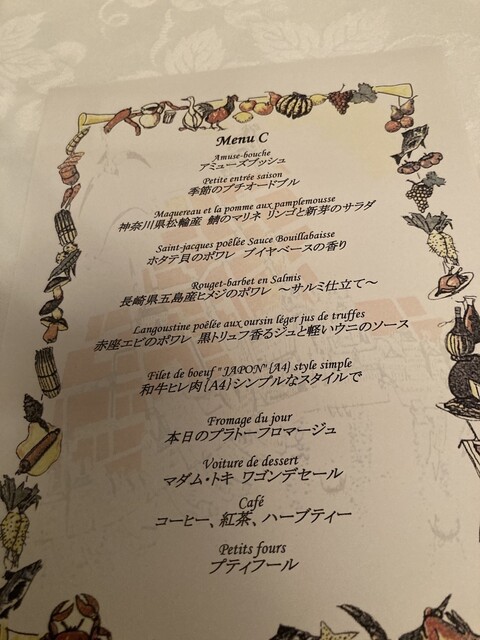 Menu C
Amuse-bouche
アミューズブッシュ
Petite entrée saison
季節のプチオードブル
Maquereau et la pomme aux pamplemousse
神奈川県松輪産 鯖のマリネ リンゴと新芽のサラダ
Saint-jacques poêlée Sauce Bouillabaisse
ホタテ貝のポワレ ブイヤベースの香り
Rouget-barbet en Salmis
長崎県五島産ヒメジのポワレ ～サルミ仕立て～
Langoustine poêlée aux oursin léger jus de truffes
赤座エビのポワレ 黒トリュフ香るジュと軽いウニのソース
Filet de boeuf "JAPON" {A4} style simple
和牛ヒレ肉{A4}シンプルなスタイルで
Fromage du jour
本日のプラトーフロマージュ
Voiture de dessert
マダム・トキ ワゴンデセール
Café
コーヒー、紅茶、ハーブティー
Petits fours
プティフール